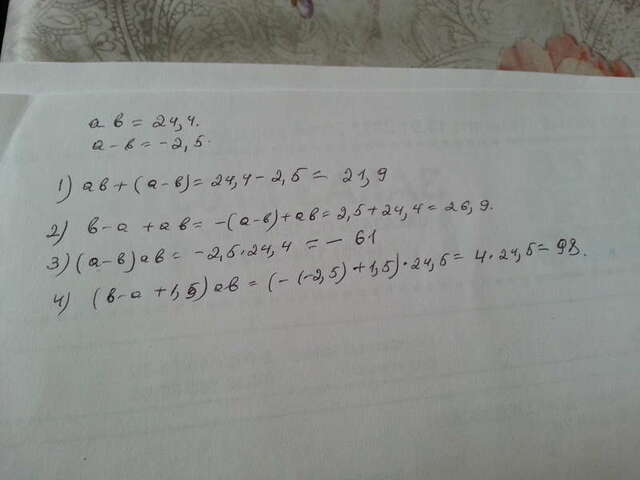 ab = 24,4.
a-b = -2,5.
1) ab + (a-b) = 24,4 - 2,5 = 21,9
2) b-a + ab = -(a-b) + ab = 2,5 + 24,4 = 26,9.
3) (a-b)ab = -2,5·24,4 = -61
4) (b-a + 1,5)ab = (-(-2,5) + 1,5)·24,5 = 4·24,5 = 98.